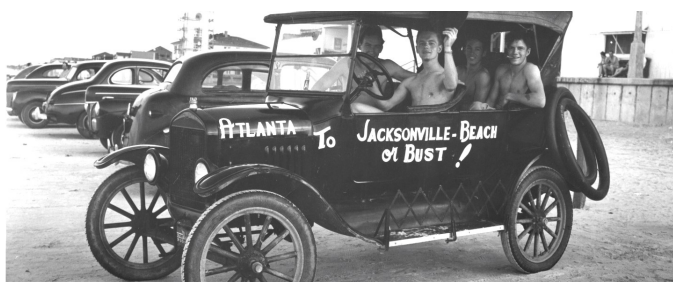 ATLANTA TO JACKSONVILLE-BEACH
or BUST!